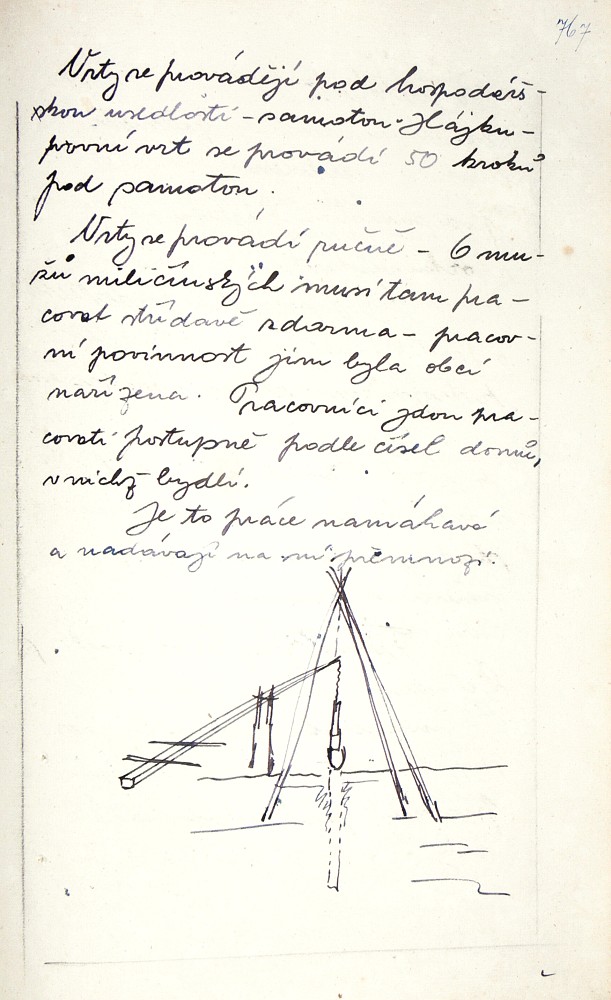 767
Vrty se provádějí pod hospodářs-
skou usedlostí - samotou Hájku -
první vrt se provádí 50 kroků
pod samotou.
Vrty se provádí ručně - 6 mu-
žů miličínských musí tam pra-
covat střídavě zdarma - pracov-
ní povinnost jim byla obcí
nařízena. Pracovníci jdou pra-
covati postupně podle čísel domů,
v nichž bydlí.
Je to práce namáhavá
a nadávají na ní přemnozí.